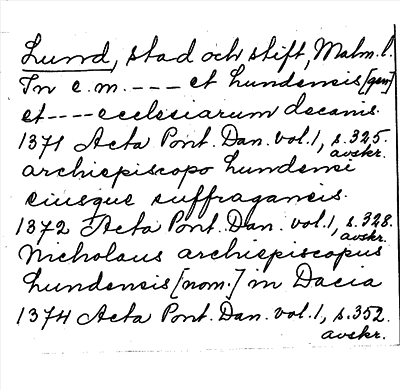 Lund, stad och stift, Malm. l.
In e.m. --- et Lundensis [gen]
et ---- ecclesiarum decanis.
1371 Acta Pont. Dan. vol. 1, s. 325.
avskr.
archiepiscopo Lundensi
eiusque suffraganeis.
1372 Acta Pont. Dan. vol. 1, s. 328.
avskr.
Nicholaus archiepiscopus
Lundensis [nom.] in Dacia
1374 Acta Pont. Dan. vol. 1, s. 352.
avskr.